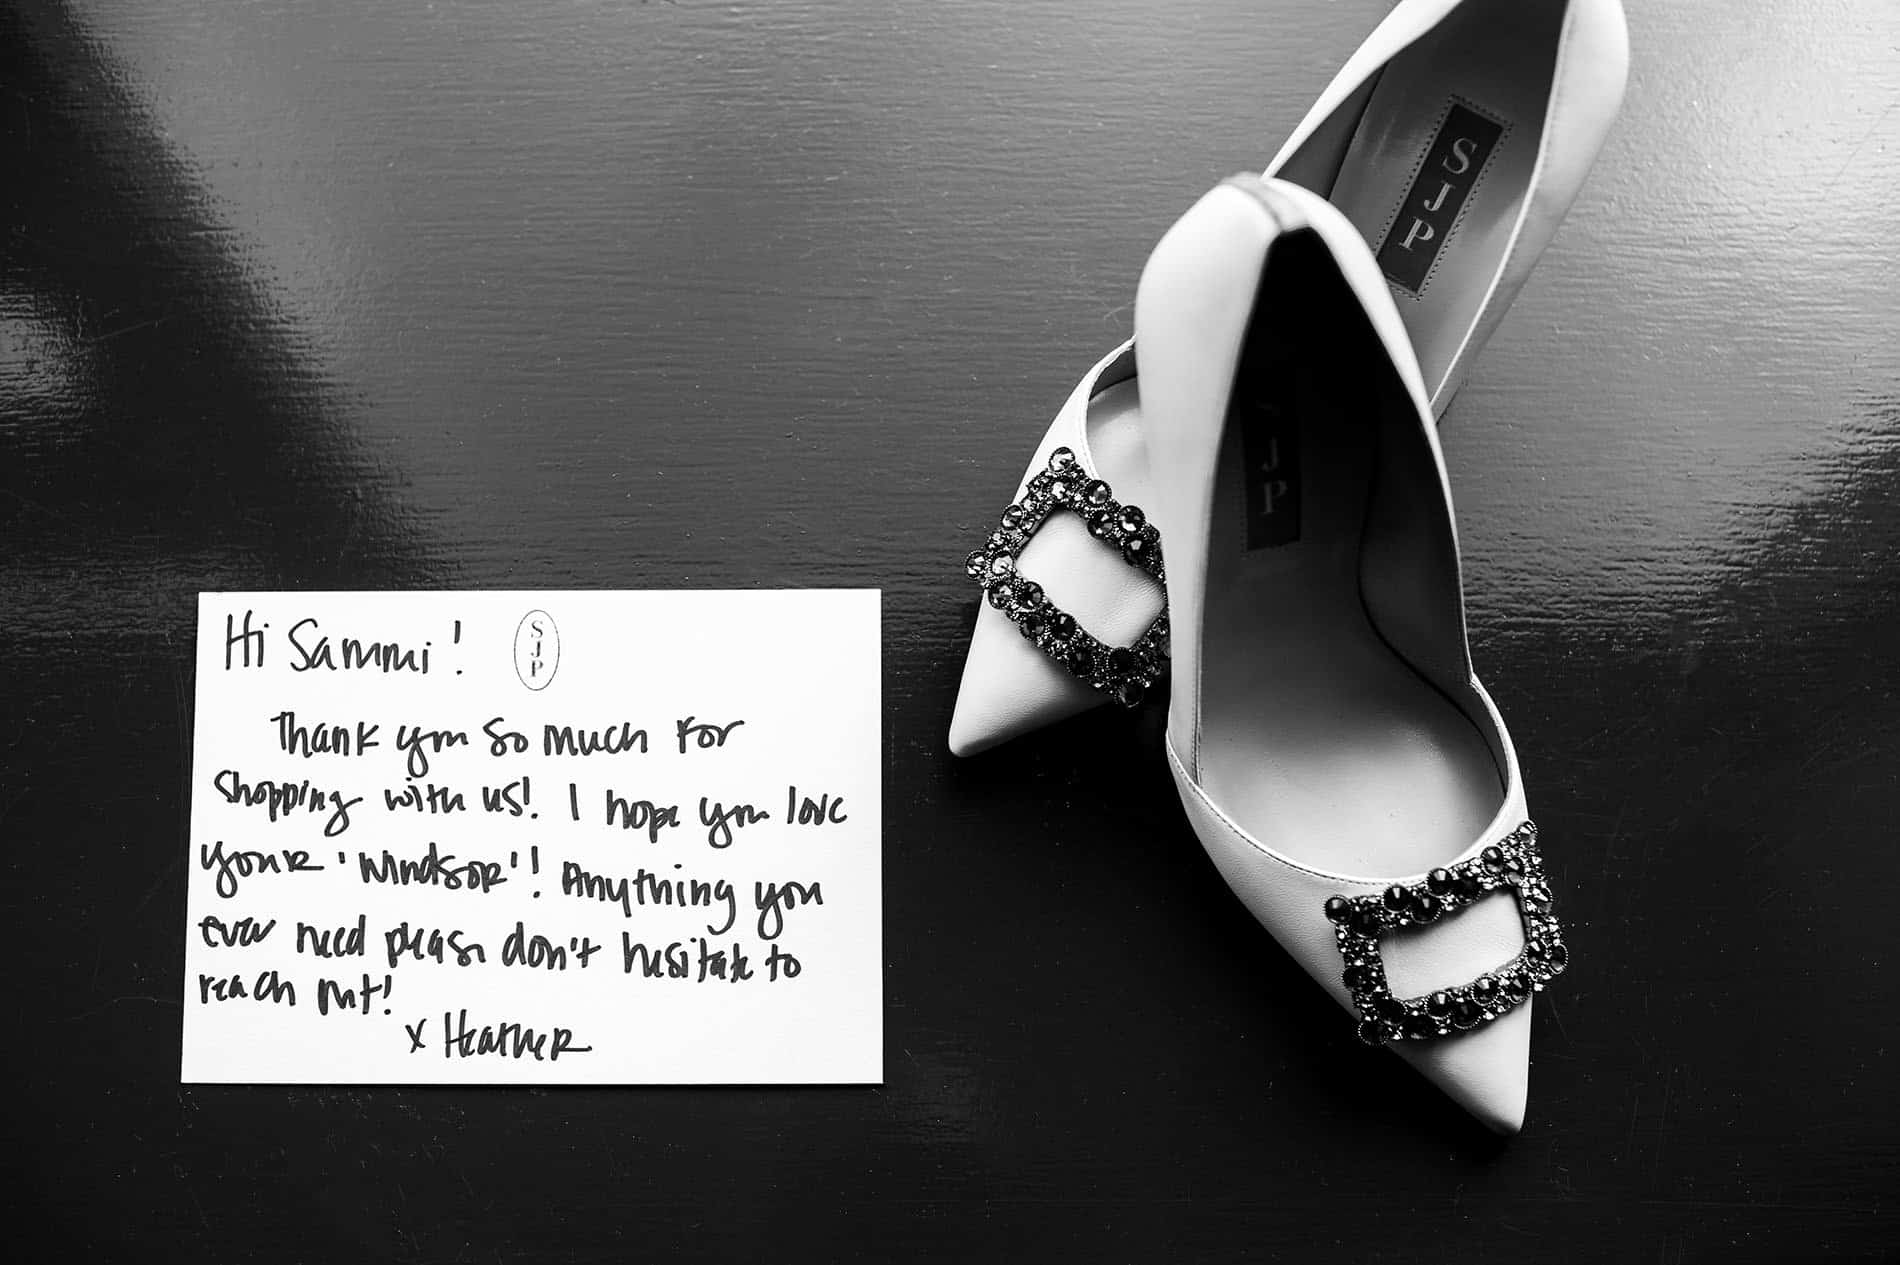 Hi Sammi!
SJP
Thank you so much for
shopping with us! I hope you love
your 'Windsor'! Anything you
ever need please don't hesitate to
reach out!
x Heather
SJP
SJP